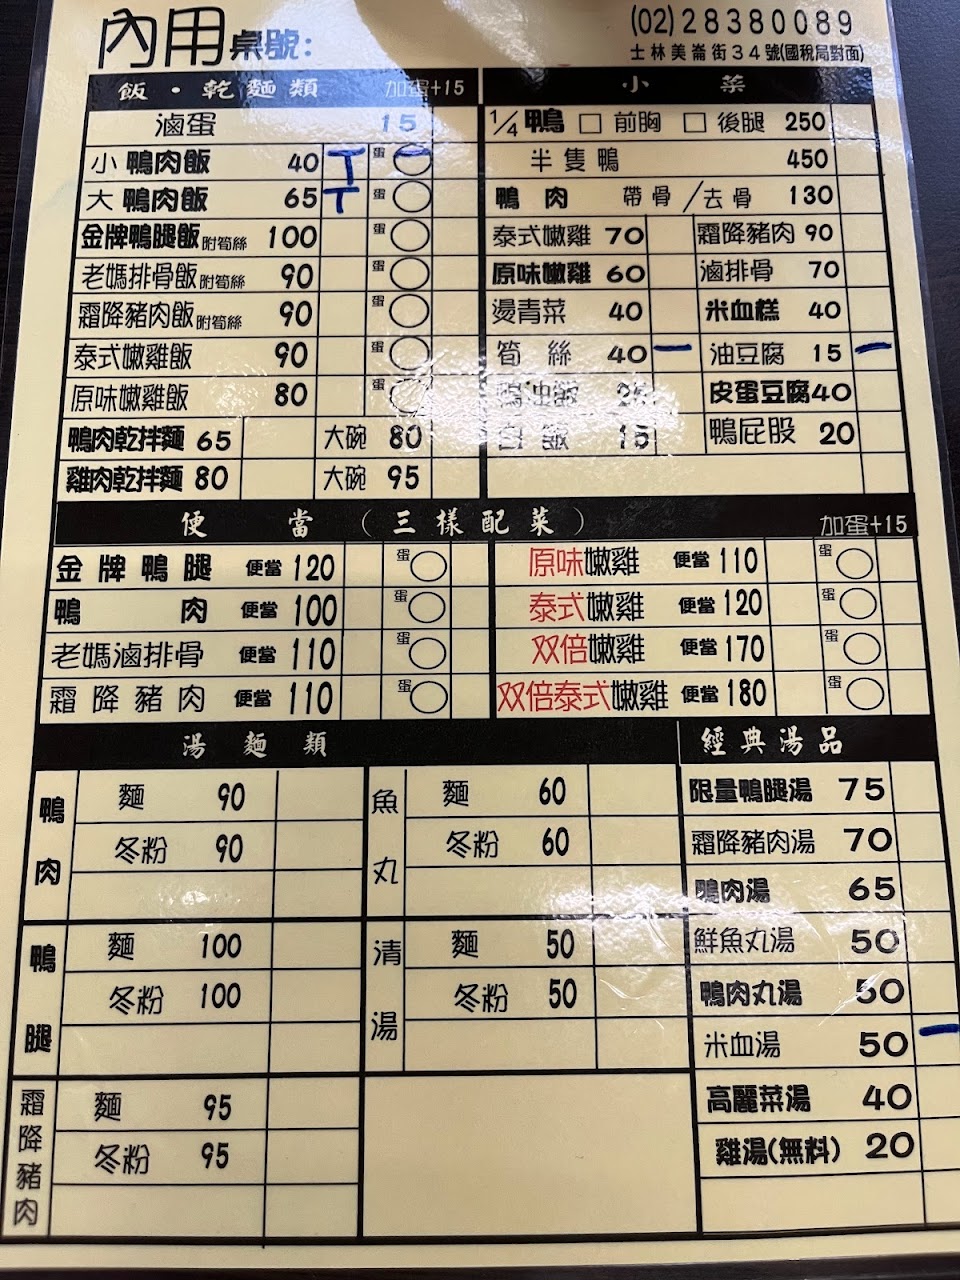 內用桌號:
(02)28380089
士林美崙街34號(國稅局對面)
飯・乾麵類 加蛋+15
滷蛋 15
小鴨肉飯 40 蛋
大鴨肉飯 65 蛋
金牌鴨腿飯附筍絲 100 蛋
老媽排骨飯附筍絲 90 蛋
霜降豬肉飯附筍絲 90 蛋
泰式嫩雞飯 90 蛋
原味嫩雞飯 80 蛋
鴨肉乾拌麵 65 大碗 80
雞肉乾拌麵 80 大碗 95
小菜
1/4鴨 □ 前胸 □ 後腿 250
半隻鴨 450
鴨肉 帶骨/去骨 130
泰式嫩雞 70 霜降豬肉 90
原味嫩雞 60 滷排骨 70
燙青菜 40 米血糕 40
筍絲 40 油豆腐 15
鴨油飯 25 皮蛋豆腐 40
白飯 15 鴨屁股 20
便當(三樣配菜) 加蛋+15
金牌鴨腿 便當 120 蛋
鴨肉 便當 100 蛋
老媽滷排骨 便當 110 蛋
霜降豬肉 便當 110 蛋
原味嫩雞 便當 110 蛋
泰式嫩雞 便當 120 蛋
双倍嫩雞 便當 170 蛋
双倍泰式嫩雞 便當 180 蛋
湯麵類
鴨肉
麵 90
冬粉 90
鴨腿
麵 100
冬粉 100
霜降豬肉
麵 95
冬粉 95
魚丸
麵 60
冬粉 60
清湯
麵 50
冬粉 50
經典湯品
限量鴨腿湯 75
霜降豬肉湯 70
鴨肉湯 65
鮮魚丸湯 50
鴨肉丸湯 50
米血湯 50
高麗菜湯 40
雞湯(無料) 20